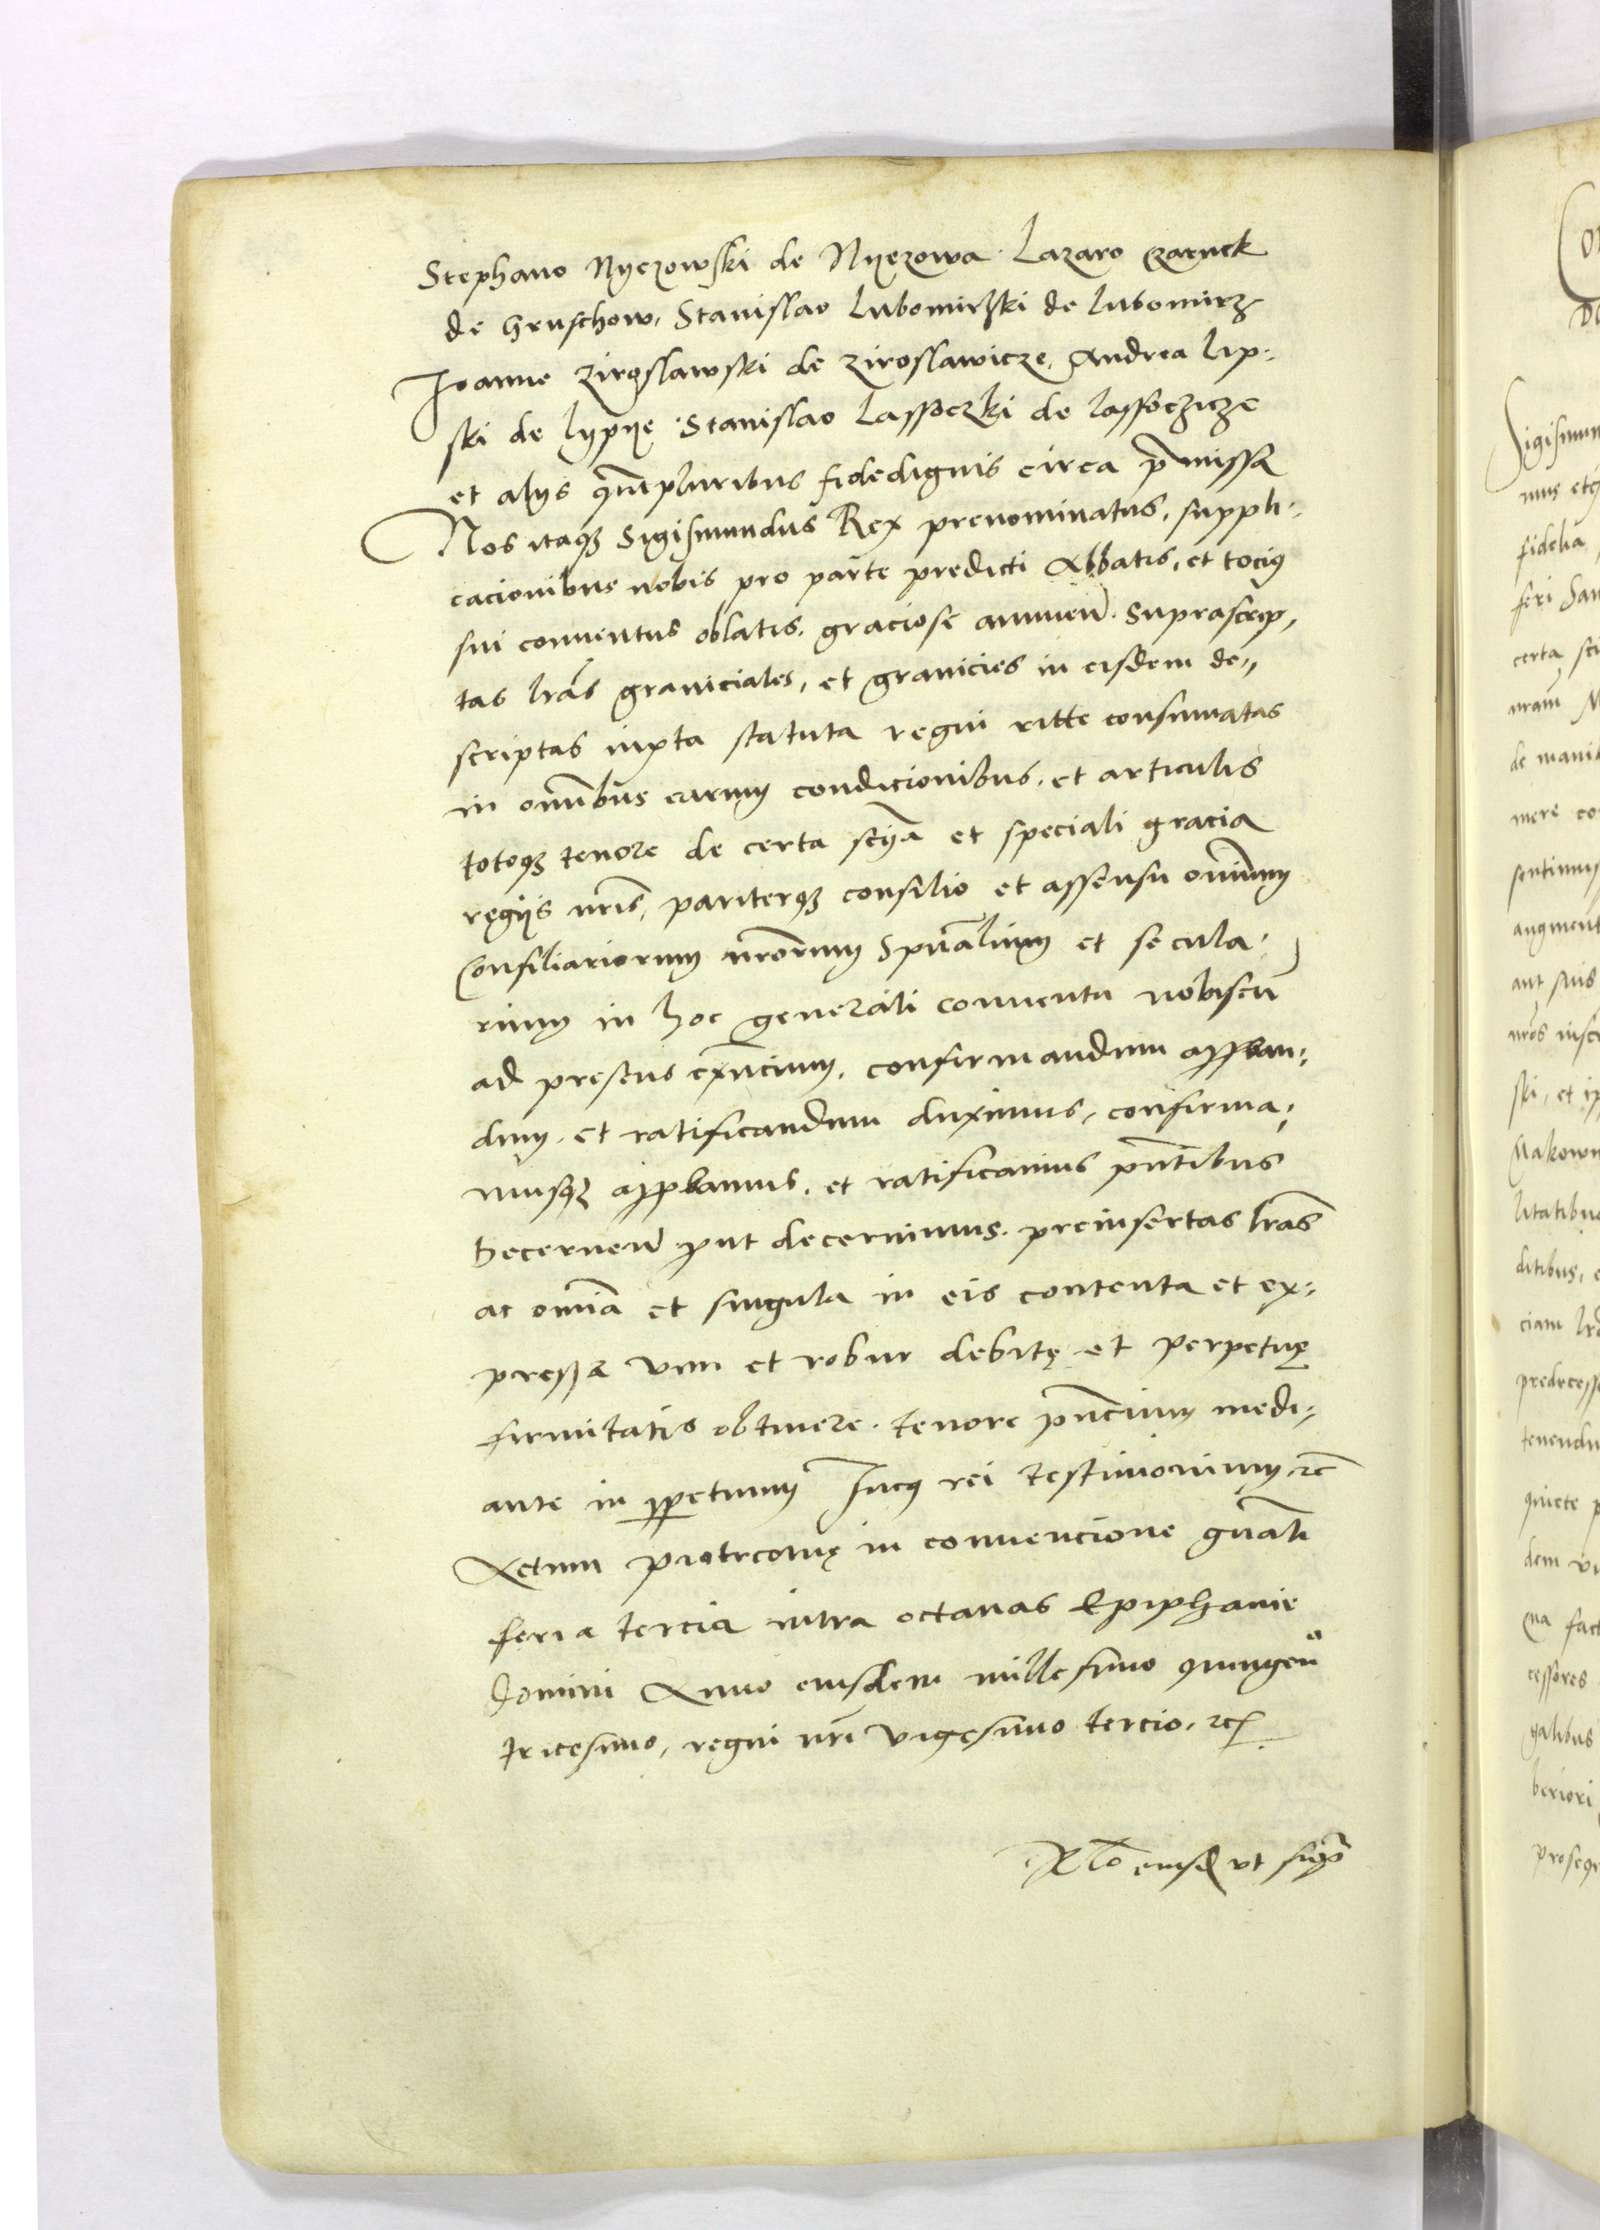 Stephano Nyezowski de Nyezowa. Lazaro
de Gruschow, Stanislao Lubomirzki de Lubomirz
Joanne Ziroslawski de Ziroslawicze, Andrea Lip-
ski de lypye Stanislao Lassoczki de lassoczicze
et alys q̄mpluribus fidedignis circa p̄missa
Nos itaqȝ Sigismundus Rex prenominatus, suppli-
cacionibus nobis pro parte predicti Abbatis, et tociꝰ
sui conuentus oblatis, graciose annuen̄. Suprascrip-
tas lr̄as graniciales, et granicies in eisdem de-
scriptas iuxta statuta regni ritte consumatas
in omībus earum condicionibus, et articulis
totoqȝ tenore de certa scīa et speciali gracia
regijs nr̄is, pariterqȝ consilio et assensu omnium
Consiliariorum nr̄orum Spūalium et secula-
rium in hoc generali conuentu nobiscū
ad presens exn̄cium, confirmandum appban-
dum, et ratificandum duximus, confirma-
musqȝ appbamus, et ratificamus pn̄tibus
Decernen̄ put decernimus, preinsertas lr̄as
ac omīa et singula in eis contenta et ex-
pressa vim et robur debitę et perpetuę
firmitatis obtinere, tenore pn̄cium medi-
ante in ppetuum Incꝰ rei testimonium, ꝛc̄
Actum piotrcouię in conuencione gn̄ali
feria tercia intra octauas Epiphanie
Domini Anno eiusdem millesimo quingen̄o
tricesimo, regni nr̄i vigesimo tercio, ꝛc̄
Rlo eiusd vt supra
Sigismun
mus etc
fidelia
certa sci
nram
mere co
sentimus
augment
aut suis
nr̄os inscr
ski, et ip
Makown
litatibus
ditibus, e
ciam lr̄a
predecess
tenendu
quiete p
dem vi
na fact
cessores
galibus
beriori
prosequ